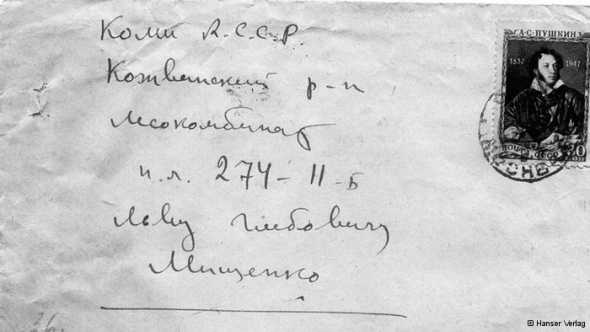 Коми А.С.С.Р.
Кожвинский р-н
лесокомбинат
п.я. 274-11-Б
Льву Глебовичу
Мищенко
А·С·ПУШКИН
1837 1947
ПОЧТА СССР 30
МОСКВА
© Hanser Verlag